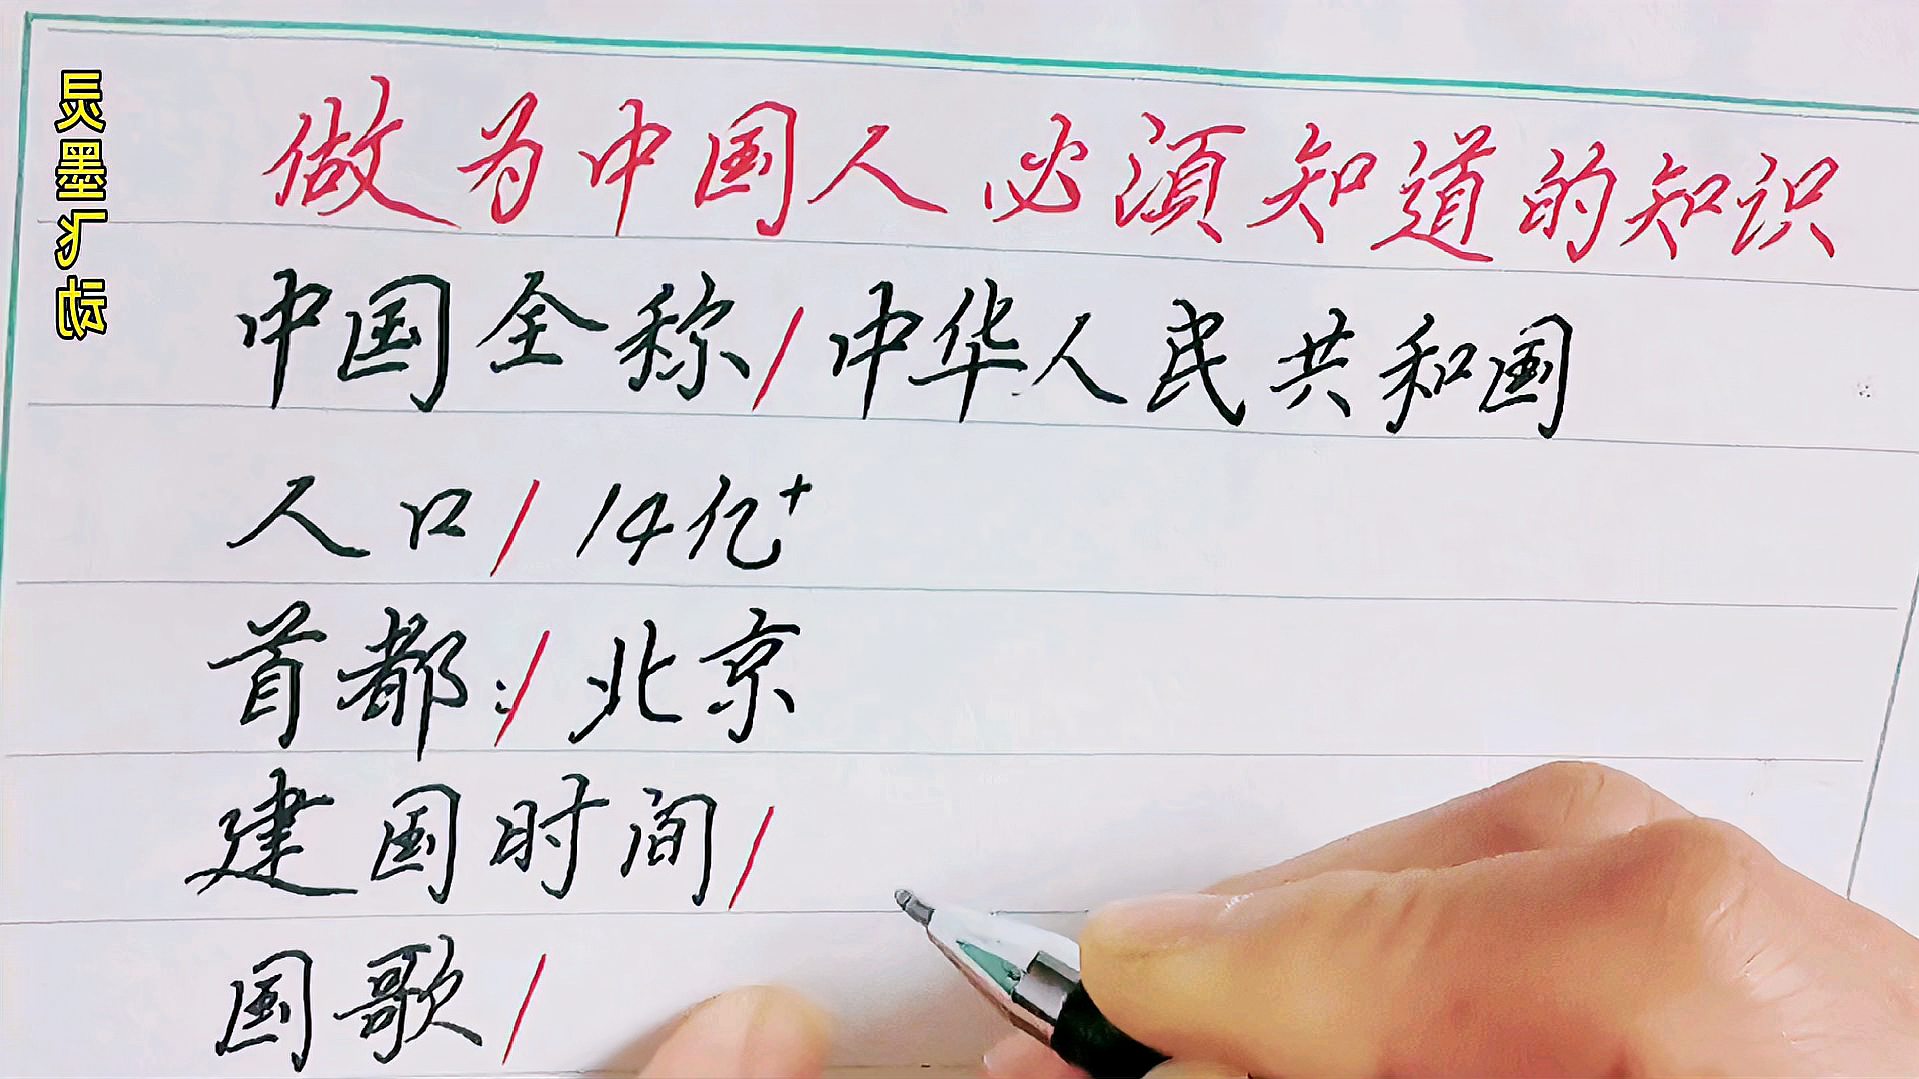 做为中国人必須知道的知识
中国全称/中华人民共和国
人口/14亿+
首都:/北京
建国时间/
国歌/